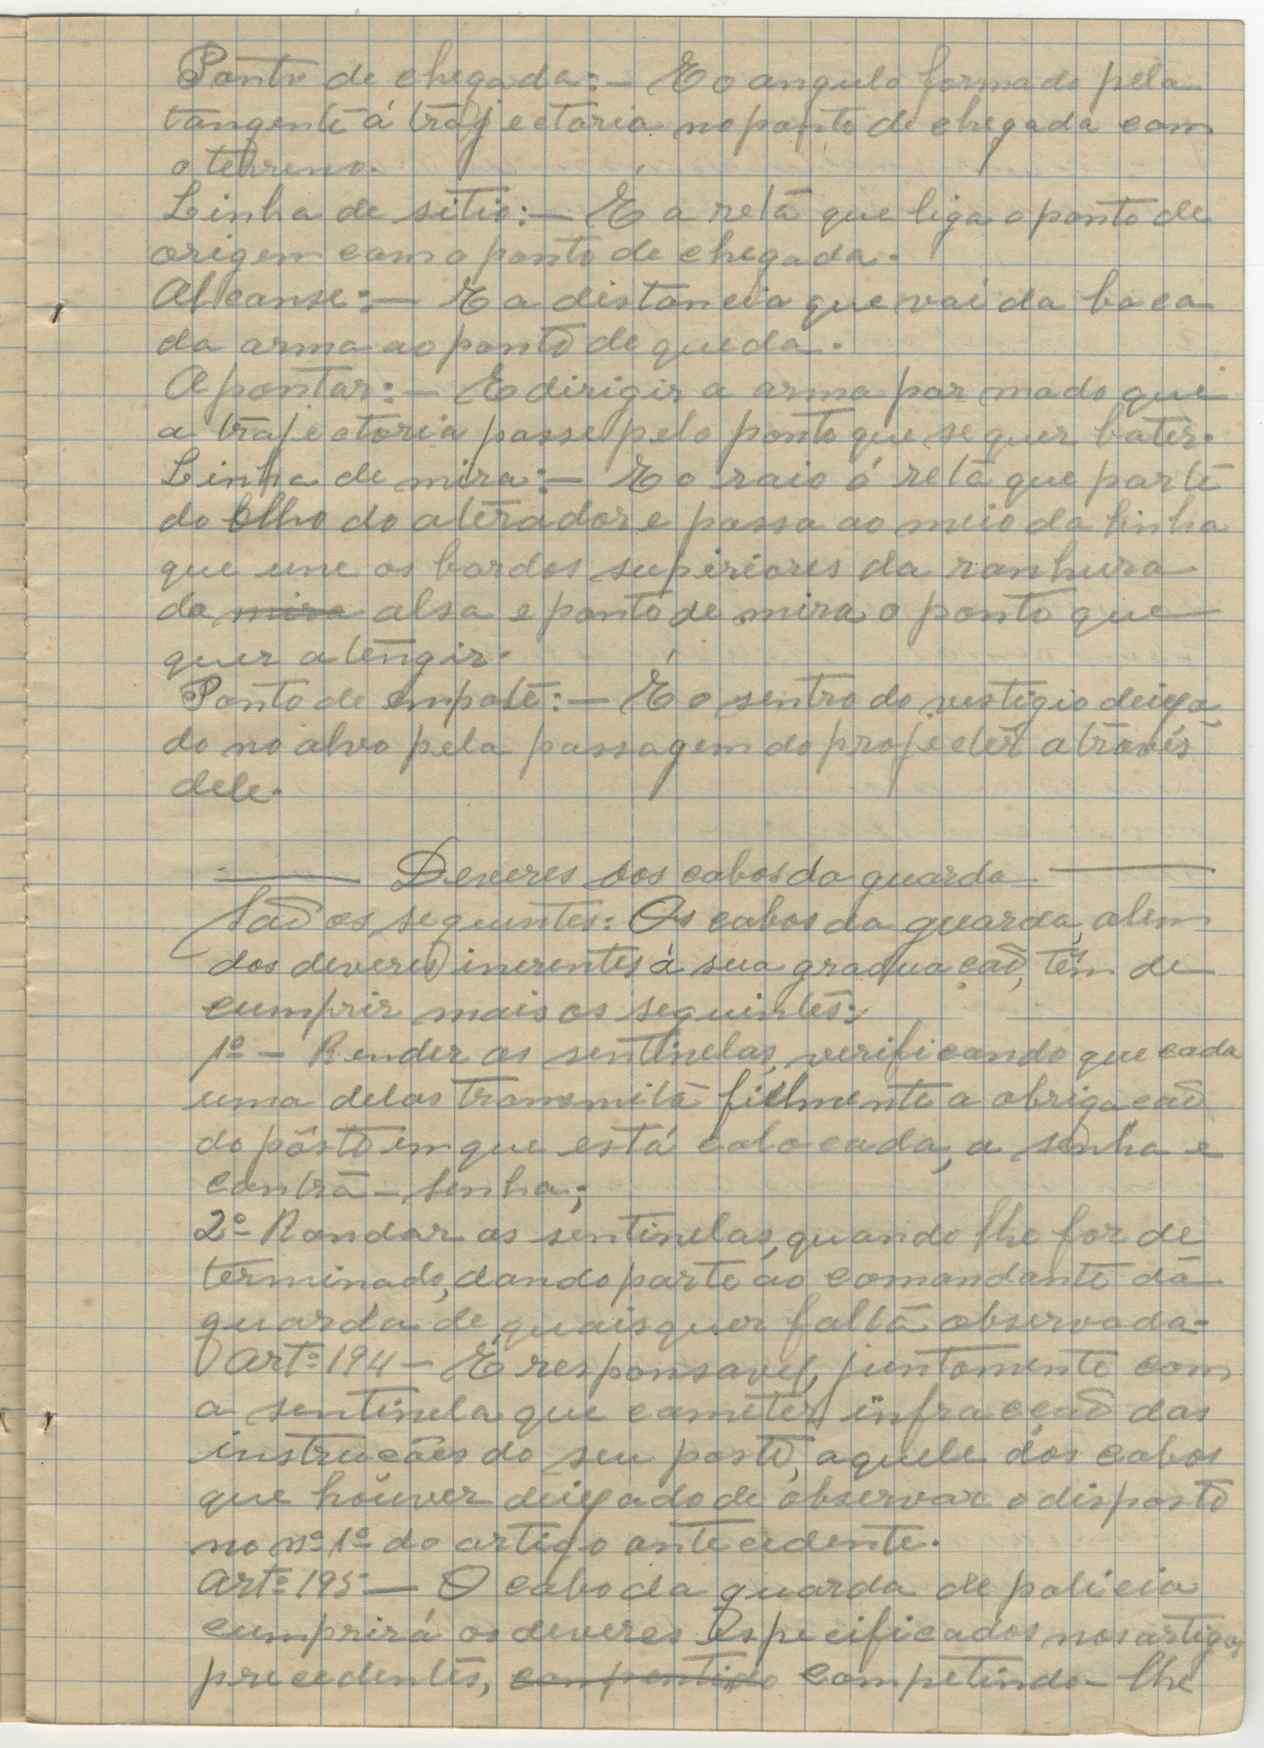 Ponto de chegada:- E o angulo formado pela
tangente á trajectoria no ponto de chegada com
o terreno.
Linha de sitio:- É a reta que liga o ponto de
origem com o ponto de chegada.
Alcanse:- E a distancia que vai da boca
da arma ao ponto de queda.
Apontar:- E dirigir a arma por modo que
a trajectoria passe pelo ponto que se quer bater.
Linha de mira:- E o raio ó reta que parte
do olho do aterador e passa ao meio da linha
que une os bordos supiriores da ranhura
da mira alsa e ponto de mira o ponto que
quer atengir.
Ponto de empate:- É o sentro do vestigio deixa-
do no alvo pela passagem do projeder atravís
dele.
Deveres dos cabos da guarda
Saõ os seguntes: Os cabos da guarda, alem
dos deveres inerentes á sua graduaçaõ, têm de
cumprir mais os seguintes:
1º - Render as sentinelas, verificando que cada
uma delas transmita fielmente a obrigaçaõ
do pôsto em que está colocada, a senha e
contra-senha;
2º- Rondar as sentinelas, quando lhe for de
terminado, dando parte ao comandante da
guarda de quaisquer falta observada-
Artº 194- É responsavel, juntamente com
a sentinela que cometer infracçaõ das
instruções do seu posto, aquele dos cabos
que houver deixado de observar o disposto
no nº 1º do artigo antecedente.
Artº 195- O cabo da guarda de policia
cumprirá os deveres especificados nos artigos
precedentes, compentido competindo-lhe